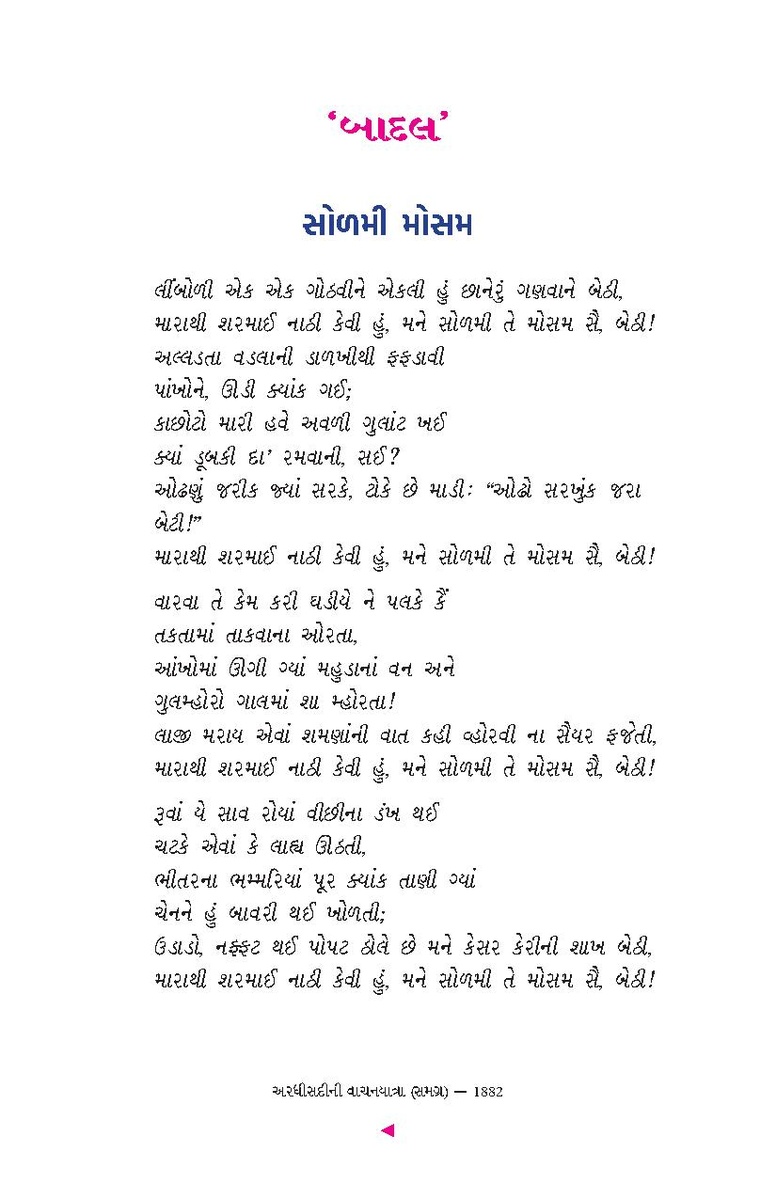 ‘બાદલ’
સોળમી મોસમ
લીંબોળી એક એક ગોઠવીને એકલી હું છાનેરું ગણવાને બેઠી,
મારાથી શરમાઈ નાઠી કેવી હું, મને સોળમી તે મોસમ સૈ, બેઠી!
અલ્લડતા વડલાની ડાળખીથી ફફડાવી
પાંખોને, ઊડી ક્યાંક ગઈ;
કાછોટો મારી હવે અવળી ગુલાંટ ખઈ
ક્યાં ડૂબકી દા’ રમવાની, સઈ?
ઓઢણું જરીક જ્યાં સરકે, ટોકે છે માડીઃ “ઓઢો સરખુંક જરા
બેટી!”
મારાથી શરમાઈ નાઠી કેવી હું, મને સોળમી તે મોસમ સૈ, બેઠી!
વારવા તે કેમ કરી ઘડીયે ને પલકે કૈં
તકતામાં તાકવાના ઓરતા,
આંખોમાં ઊગી ગ્યાં મહુડાનાં વન અને
ગુલમ્હોરો ગાલમાં શા મ્હોરતા!
લાજી મરાય એવાં શમણાંની વાત કહી વ્હોરવી ના સૈયર ફજેતી,
મારાથી શરમાઈ નાઠી કેવી હું, મને સોળમી તે મોસમ સૈ, બેઠી!
રૂવાં યે સાવ રોયાં વીછીના ડંખ થઈ
ચટકે એવાં કે લાહ્ય ઊઠતી,
ભીતરના ભમ્મરિયાં પૂર ક્યાંક તાણી ગ્યાં
ચેનને હું બાવરી થઈ ખોળતી;
ઉડાડો, નફ્ફટ થઈ પોપટ ઠોલે છે મને કેસર કેરીની શાખ બેઠી,
મારાથી શરમાઈ નાઠી કેવી હું, મને સોળમી તે મોસમ સૈ, બેઠી!
અરધીસદીની વાચનયાત્રા (સમગ્ર) — 1882